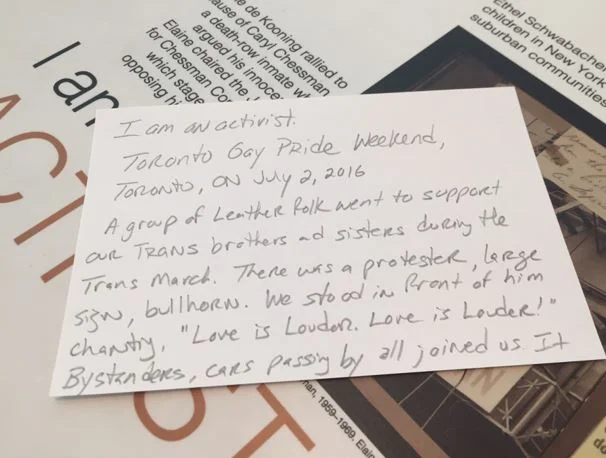 de Kooning rallied to
cause of Caryl Chessman
a death-row inmate
argued his innoce
Elaine chaired the
for Chessman Co
which stage
opposing hi
Ethel Schwabacher
children in New York
suburban communities
I am
ACTI
ST
I am an activist.
Toronto Gay Pride Weekend,
Toronto, ON July 2, 2016
A group of Leather folk went to support
our TRANS brothers and sisters during the
Trans March. There was a protester, large
sign, bullhorn. We stood in front of him
chanting, "Love is Louder. Love is Louder!"
Bystanders, cars passing by all joined us. It
1959–1969, Elain